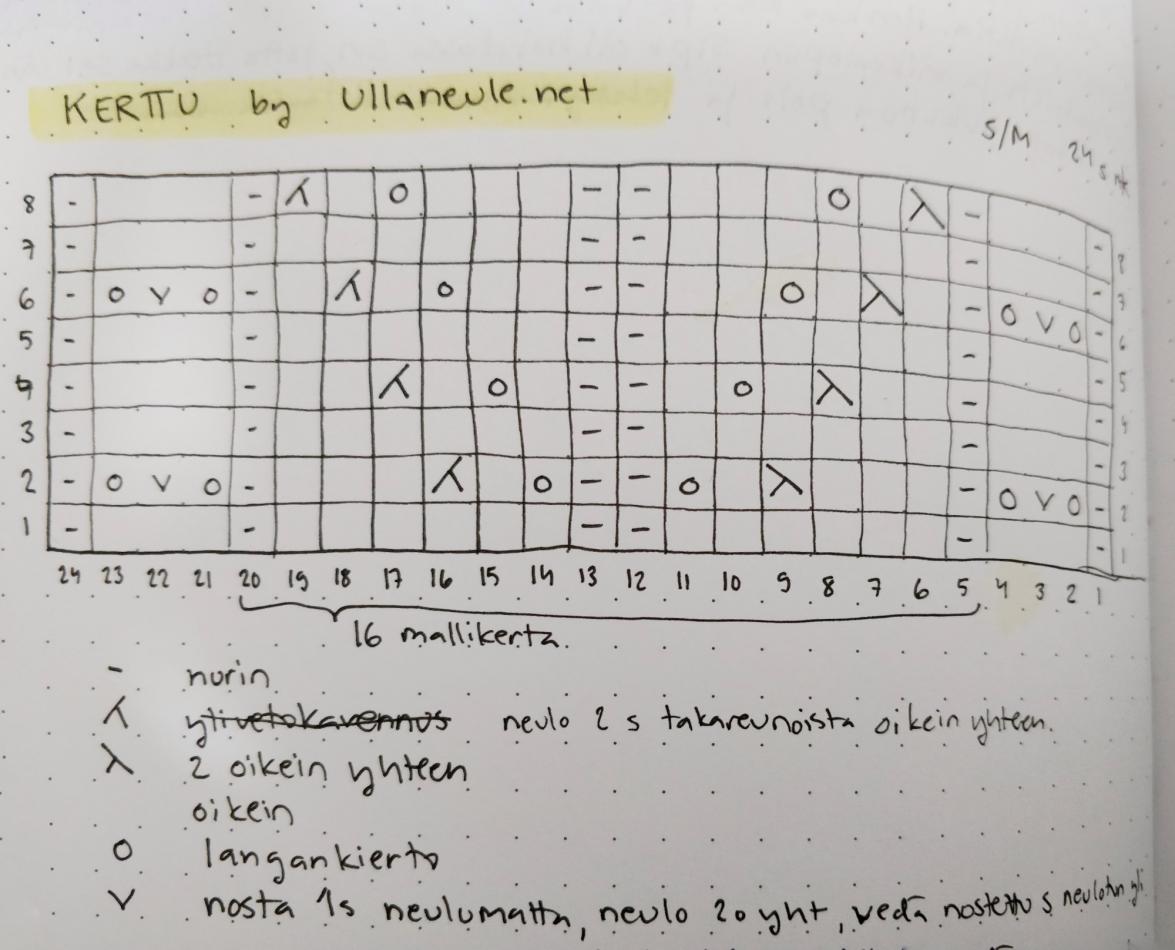 KERTTU by Ullaneule.net
S/M 24 s
8 - - ⅄ O - - O λ - -
7 - - - - - - 8
6 - O V O - ⅄ O - - O λ - O V O - 7
5 - - - - - - 6
4 - - ⅄ O - - O λ - - 5
3 - - - - - - 4
2 - O V O - ⅄ O - - O λ - O V O - 3
1 - - - - - - 2
1
24 23 22 21 20 19 18 17 16 15 14 13 12 11 10 9 8 7 6 5 4 3 2 1
16 mallikerta.
- nurin
⅄ ylivetokavennus neulo 2 s takareunoista oikein yhteen.
λ 2 oikein yhteen
oikein
O langankierto
V nosta 1s neulomatta, neulo 2o yht, vedä nostettu s neulotun yli